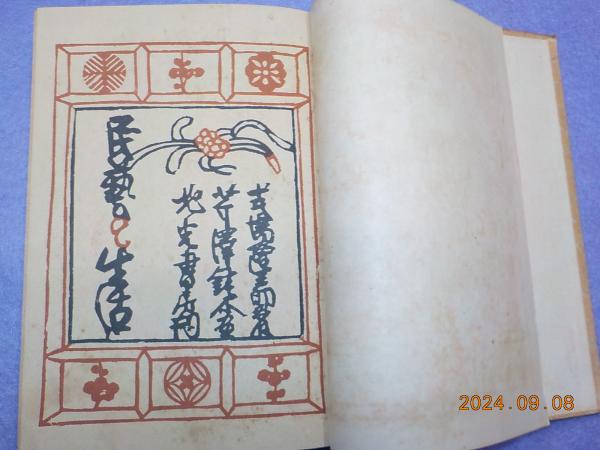 式場隆三郎著
芹澤銈介画
北光書房刊
民藝と生活
2024.09.08